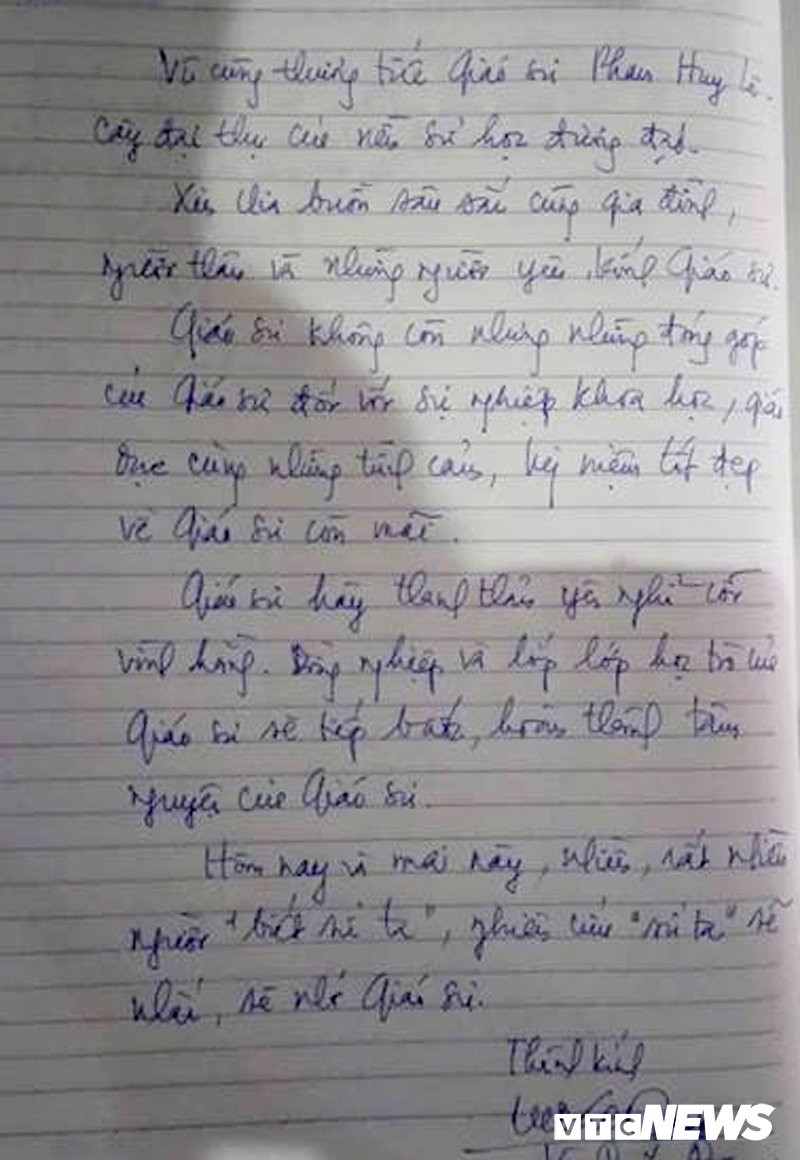 Vô cùng thương tiếc Giáo sư Phan Huy Lê.
Cây đại thụ của nền sử học đương đại.
Xin chia buồn sâu sắc cùng gia đình,
người thân và những người yêu kính Giáo sư.
Giáo sư không còn nhưng những đóng góp
của Giáo sư đối với sự nghiệp khoa học, giáo
dục cùng những tình cảm, kỷ niệm tốt đẹp
về Giáo sư còn mãi.
Giáo sư hãy thanh thản yên nghỉ cõi
vĩnh hằng. Đồng nghiệp và lớp lớp học trò của
Giáo sư sẽ tiếp bước, hoàn thành tâm
nguyện của Giáo sư.
Hôm nay và mai này, nhiều, rất nhiều
người "biết sử ta", nghiên cứu "sử ta" sẽ
nhắc, sẽ nhớ Giáo sư.
Thành kính
VTC NEWS